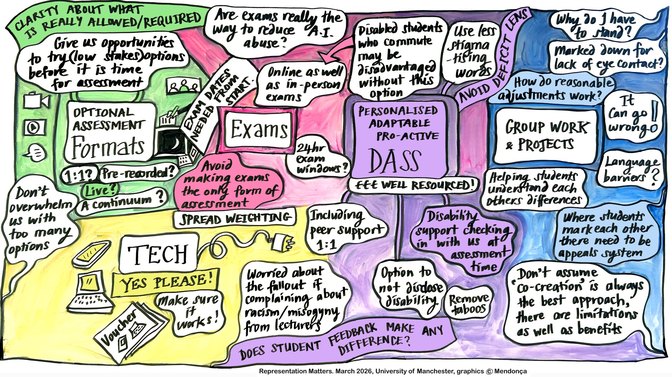 CLARITY ABOUT WHAT
IS REALLY ALLOWED/REQUIRED
Give us opportunities
to try (low stakes) options
before it is time
for assessment
OPTIONAL
ASSESSMENT
Formats
1:1? Pre-recorded?
Live?
A continuum?
Don't
overwhelm
us with
too many
options
Are exams really the
way to reduce A.I.
abuse?
EXAM DATES
NEEDED FROM
START.
Online as well
as in-person
exams
Exams
24hr
exam
windows?
Avoid
making exams
the only form of
assessment
SPREAD WEIGHTING
Disabled students
who commute
may be
disadvantaged
without this
option
Use less
stigma
tising
words
AVOID DEFICIT LENS
PERSONALISED
ADAPTABLE
PRO-ACTIVE
DASS
£££ WELL RESOURCED!
Including
peer support
1:1
Disability
support checking
in with us at
assessment
time
Option to
not disclose
disability.
Remove
taboos
Why do I have
to stand?
Marked down for
lack of eye contact?
How do reasonable
adjustments work?
GROUP WORK
& PROJECTS
It
can go
wrong!
Language
barriers?
Helping students
understand each
others differences
Where students
mark each other
there need to be
appeals system
"Don't assume
'co-creation' is always
the best approach,
there are limitations
as well as benefits
TECH
YES PLEASE!
Make sure
it works!
Voucher
Worried about
the fallout if
complaining about
racism/misogyny
from lecturers
DOES STUDENT FEEDBACK MAKE ANY
DIFFERENCE?
Representation Matters. March 2026, University of Manchester, graphics © Mendonça